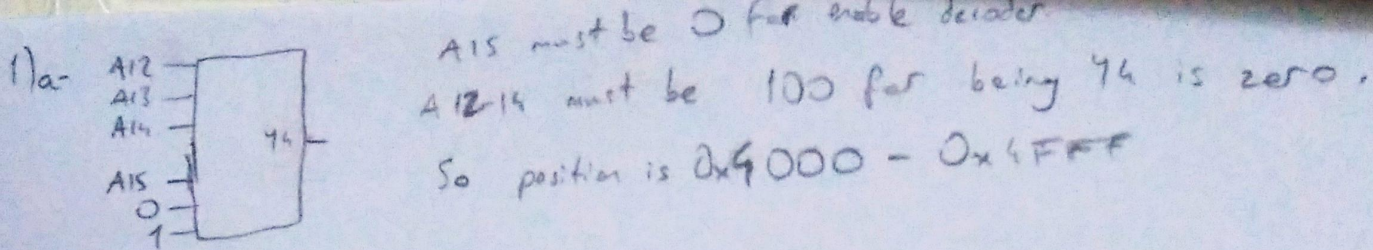 1)a-
A12
A13
A14
Y4
A15
0
1
A15 must be 0 for enable decoder.
A12-14 must be 100 for being Y4 is zero.
So position is 0x4000 - 0x4FFF